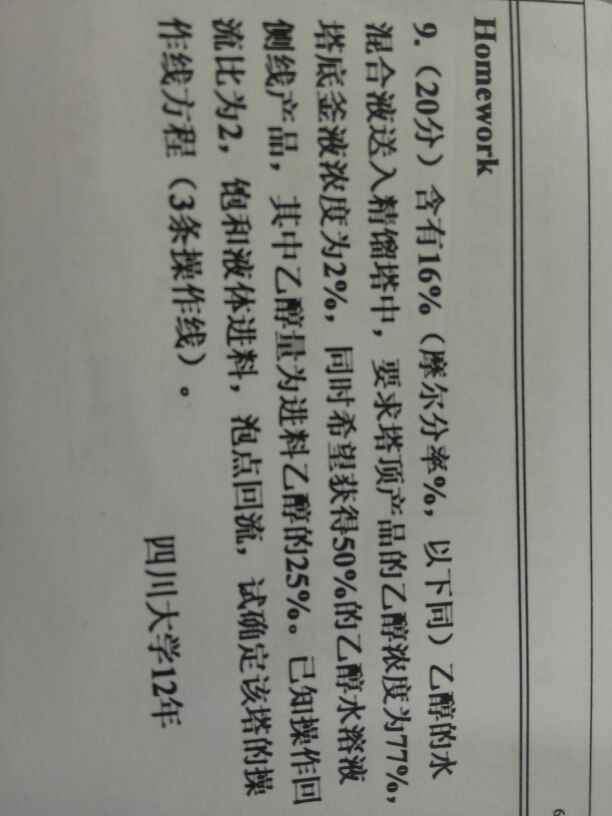 6
Homework
9.（20分）含有16%（摩尔分率%，以下同）乙醇的水
混合液送入精馏塔中，要求塔顶产品的乙醇浓度为77%，
塔底釜液浓度为2%，同时希望获得50%的乙醇水溶液
侧线产品，其中乙醇量为进料乙醇的25%。已知操作回
流比为2，饱和液体进料，泡点回流，试确定该塔的操
作线方程（3条操作线）。
四川大学12年